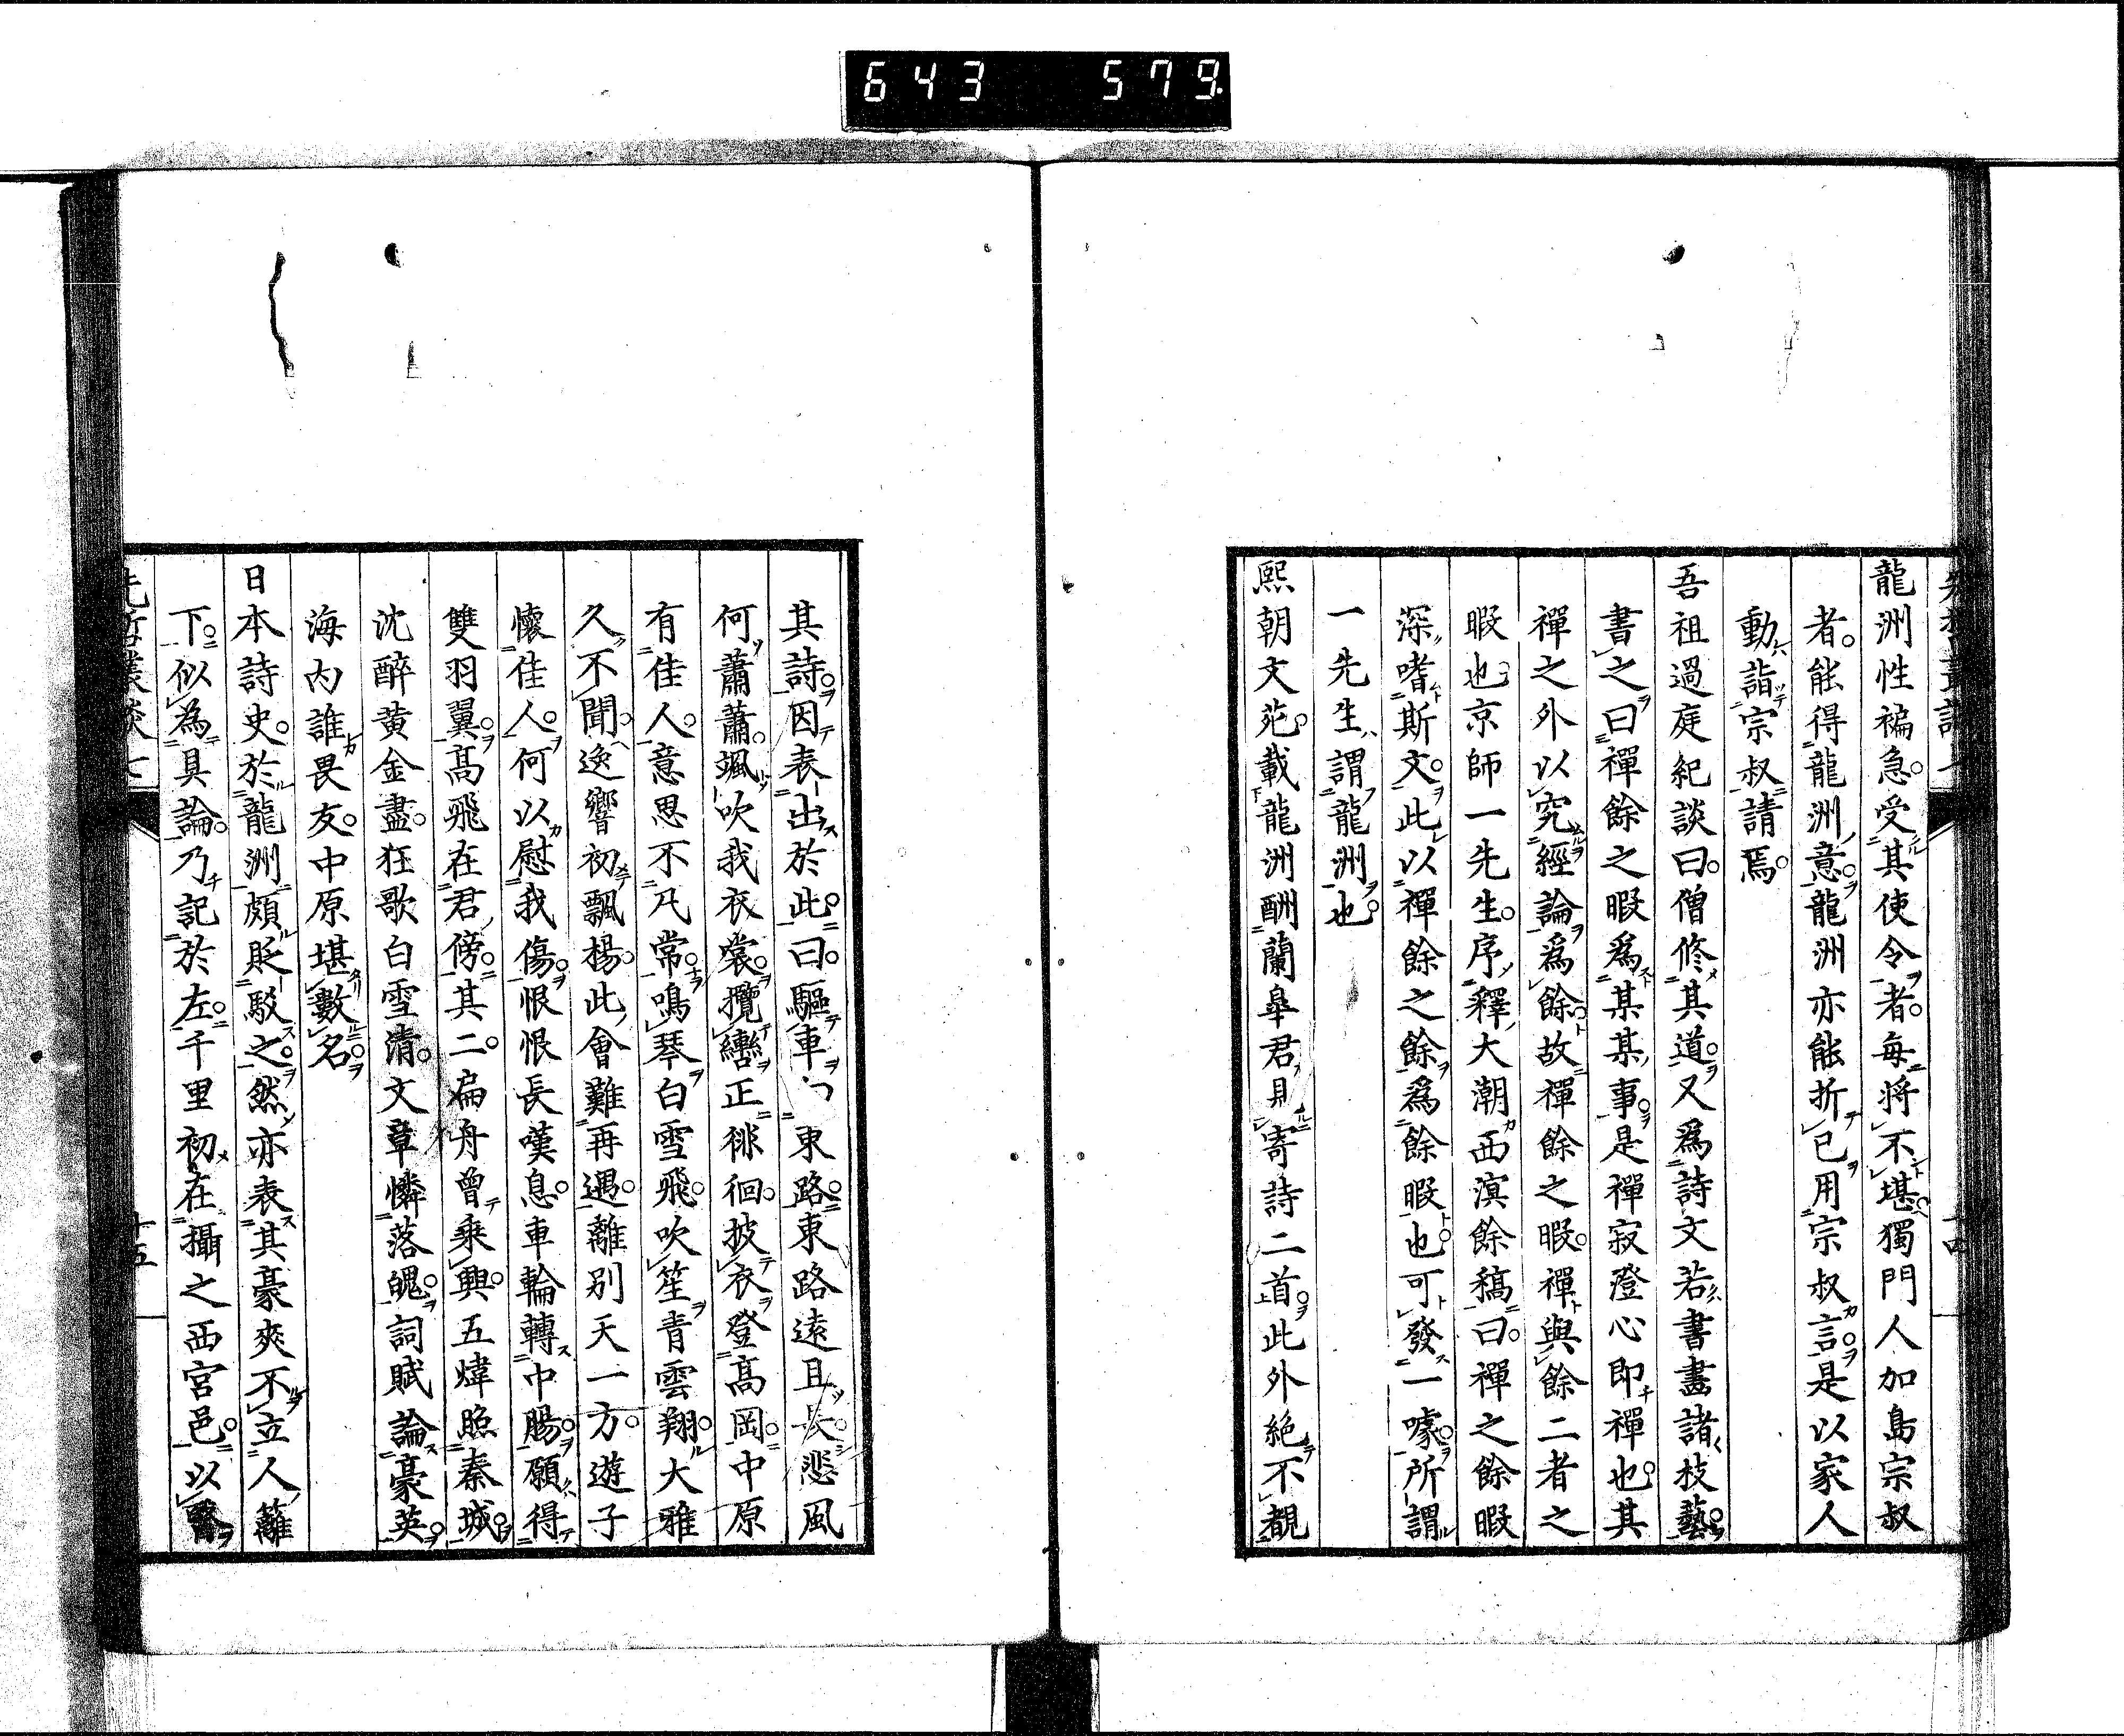 643 579.
龍洲性褊急受其使令者每將不堪獨門人加島宗叔
者能得龍洲意龍洲亦能折已用宗叔言是以家人
動詣宗叔請焉
吾祖過庭紀談曰僧修其道又爲詩文若書畫諸技藝
書之曰禪餘之暇爲某某事是禪寂澄心即禪也其
禪之外以究經論爲餘故禪餘之暇禪與餘二者之
暇也京師一先生序釋大潮西溟餘稿曰禪之餘暇
深嗜斯文此以禪餘之餘爲餘暇也可發一噱所謂
一先生謂龍洲也
熙朝文苑載龍洲酬蘭皐君見寄詩二首此外絶不覩
其詩因表出於此曰驅車東路東路遠且長悲風
何蕭蕭颯吹我衣裳攬轡正徘徊披衣登高岡中原
有佳人意思不凡常鳴琴白雪飛吹笙青雲翔大雅
久不聞逸響初飄揚此會難再遇離別天一方遊子
懷佳人何以慰我傷恨恨長嘆息車輪轉中腸願得
雙羽翼高飛在君傍其二扁舟曾乘興五煒照秦城
沈醉黄金盡狂歌白雪清文章憐落魄詞賦論豪英
海内誰畏友中原堪數名
日本詩史於龍洲頗貶駁之然亦表其豪爽不立人籬
下似為具論乃記於左千里初在攝之西宮邑以醫
先哲叢談 七 十五